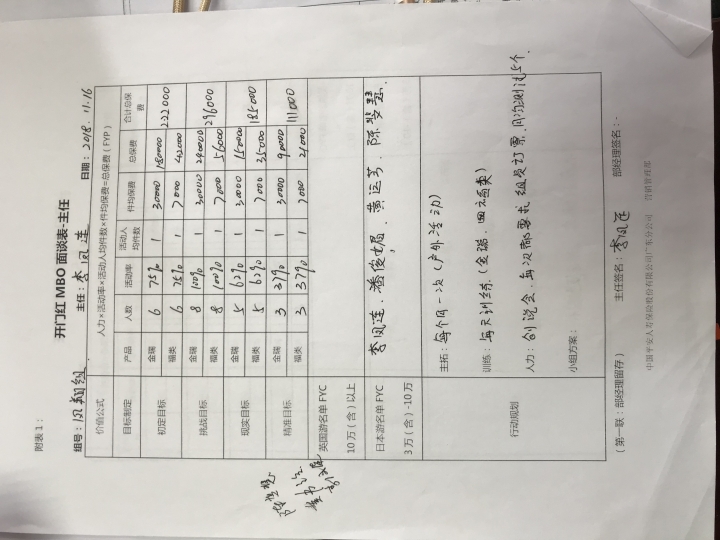 附表 1：
开门红 MBO 面谈表-主任
组号：凤翔组 主任：李凤连 日期：2018.11.16
价值公式 人力×活动率×活动人均件数×件均保费=总保费（FYP）
目标制定 产品 人数 活动率 活动人均件数 件均保费 总保费 合计总保费
初定目标 金瑞 6 75% 1 30000 180000 222000
福类 6 75% 1 7000 42000
挑战目标 金瑞 8 100% 1 30000 240000 296000
福类 8 100% 1 7000 56000
现实目标 金瑞 5 62% 1 30000 150000 185000
福类 5 62% 1 7000 35000
精准目标 金瑞 3 37% 1 30000 90000 111000
福类 3 37% 1 7000 21000
英国游名单 FYC
10 万（含）以上
日本游名单 FYC
3 万（含）-10 万
李凤连、潘俊妮、黄运芳、陈翠慧
行动规划
主拓：每个月一次（户外活动）
训练：每天训练（金瑞、四六百类）
人力：创说会、每次都要求组员订票、月均测试5个.
小组方案：
（第一联：部经理留存） 主任签名：李凤连 部经理签名：
中国平安人寿保险股份有限公司广东分公司 营销管理部